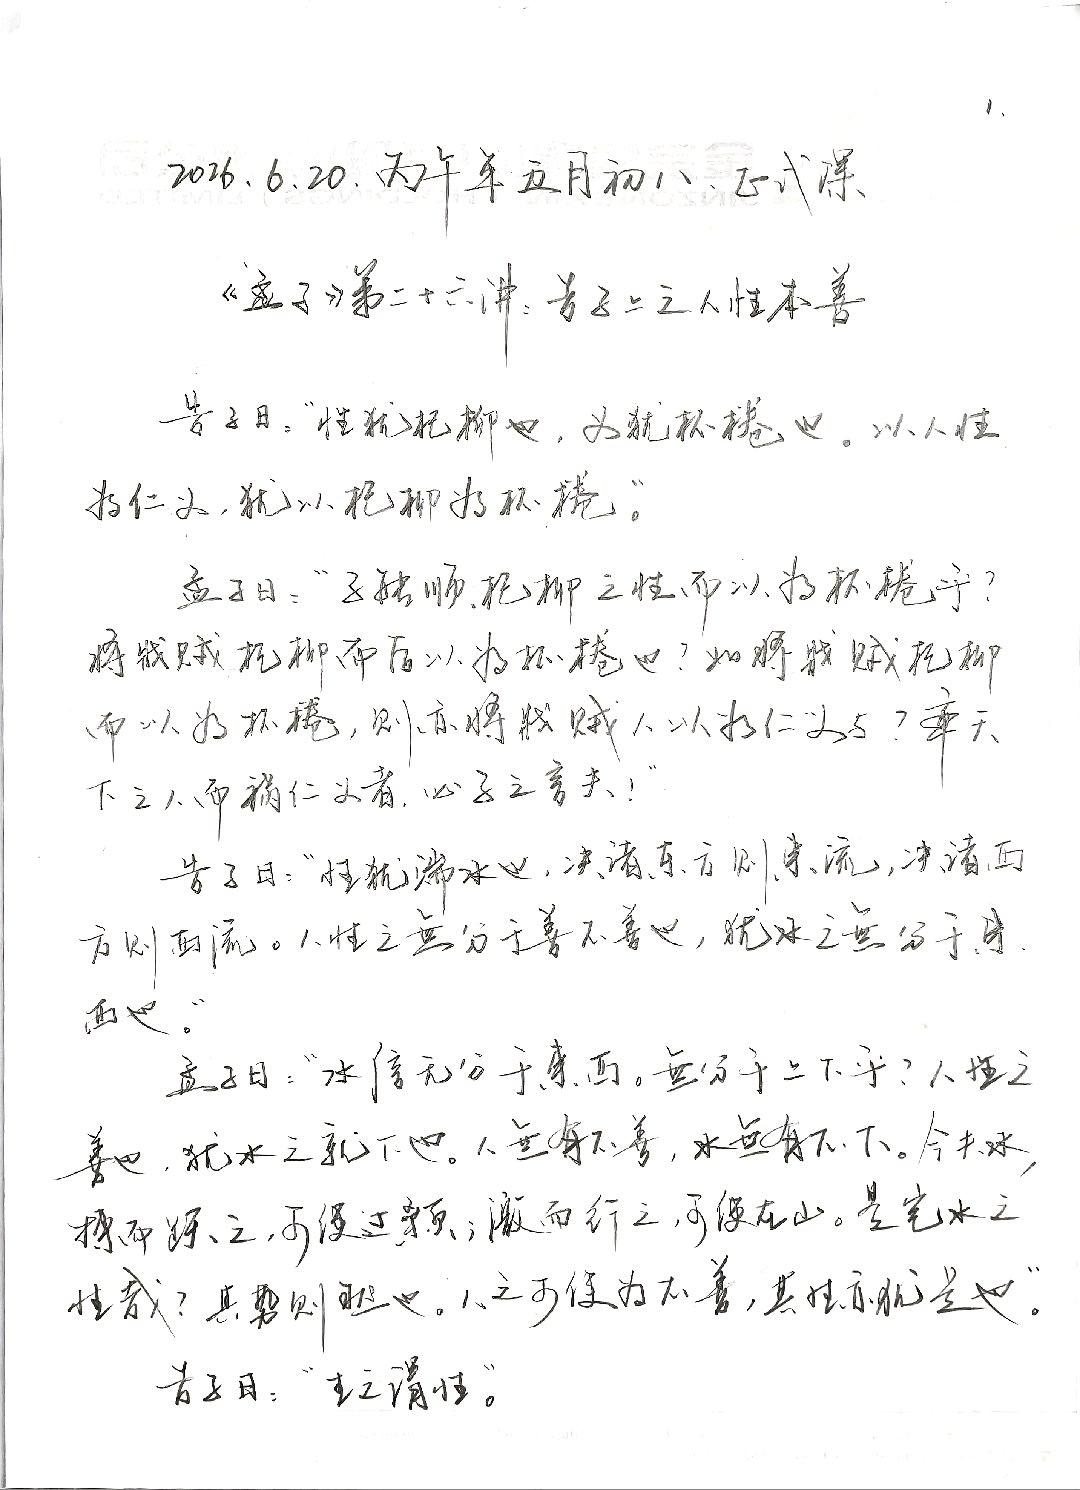 1.
2026.6.20.丙午年五月初八.正式课
《孟子》第二十六讲：告子上之人性本善
告子曰：“性犹杞柳也，义犹杯棬也。以人性
为仁义，犹以杞柳为杯棬。”
孟子曰：“子能顺杞柳之性而以为杯棬乎？
将戕贼杞柳而后以为杯棬也？如将戕贼杞柳
而以为杯棬，则亦将戕贼人以为仁义与？率天
下之人而祸仁义者，必子之言夫！”
告子曰：“性犹湍水也，决诸东方则东流，决诸西
方则西流。人性之無分于善不善也，犹水之無分于东
西也。”
孟子曰：“水信无分于東西。無分于上下乎？人性之
善也，犹水之就下也。人無有不善，水無有不下。今夫水，
搏而跃之，可使过颡；激而行之，可使在山。是岂水之
性哉？其势则然也。人之可使为不善，其性亦犹是也”。
告子曰：“生之谓性”。